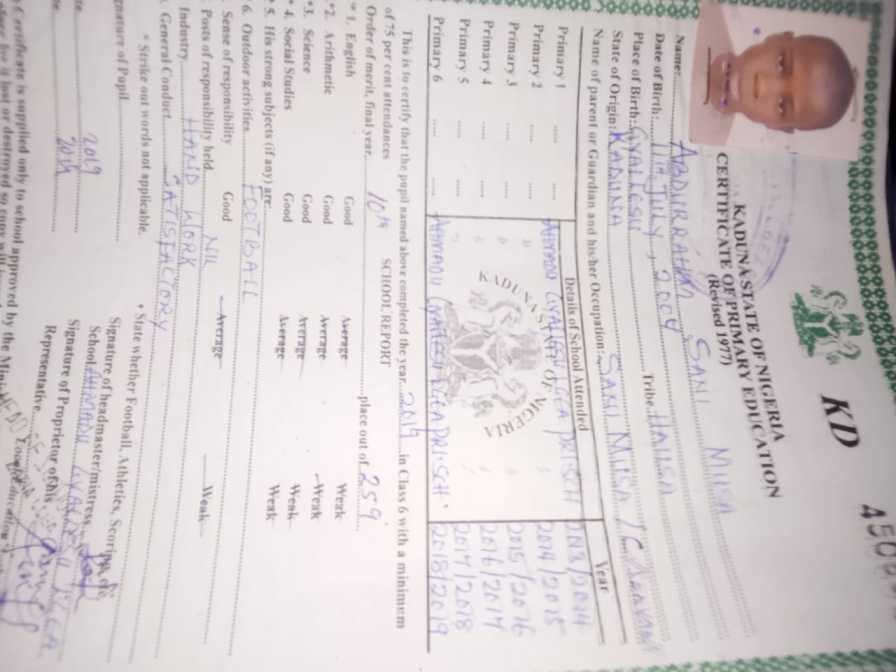 KD
4500
KADUNA STATE OF NIGERIA
CERTIFICATE OF PRIMARY EDUCATION
(Revised 1977)
Name: ABDURRAHAN SANI MUSA
Date of Birth: 11th JULY, 2004
Place of Birth: GYALLESU Tribe HAUSA
State of Origin: KADUNA
Name of parent or Guardian and his/her Occupation: SANI MUSA /
Details of School Attended Year
Primary 1 .... .... AHMADU GYALLESU LGEA PRI. SCH 2013/2014
Primary 2 .... .... " " " 2014/2015
Primary 3 .... .... " " " 2015/2016
Primary 4 .... .... 2016/2017
Primary 5 .... .... 2017/2018
Primary 6 .... .... AHMADU GYALLESU LGEA PRI. SCH. 2018/2019
KADUNA STATE OF NIGERIA
This is to certify that the pupil named above completed the year 2019 in Class 6 with a minimum
of 75 per cent attendances
SCHOOL REPORT
Order of merit, final year, 10th place out of 259
* 1. English Good Average Weak
*2. Arithmetic Good Average Weak
*3. Science Good Average Weak
* 4. Social Studies Good Average Weak
* 5. His strong subjects (if any) are:
6. Outdoor activities FOOTBALL
Sense of responsibility Good Average Weak
Posts of responsibility held NIL
Industry HAND WORK
General Conduct SATISFACTORY
* Strike out words not applicable. * State whether Football, Athletics,
Signature of Pupil
Signature of headmaster/mistress
School AHMADU GYALLESU LGEA
2019
Signature of Proprietor of his
Representative
2019
certificate is supplied only to school approved by the
lost or destroyed so copy will